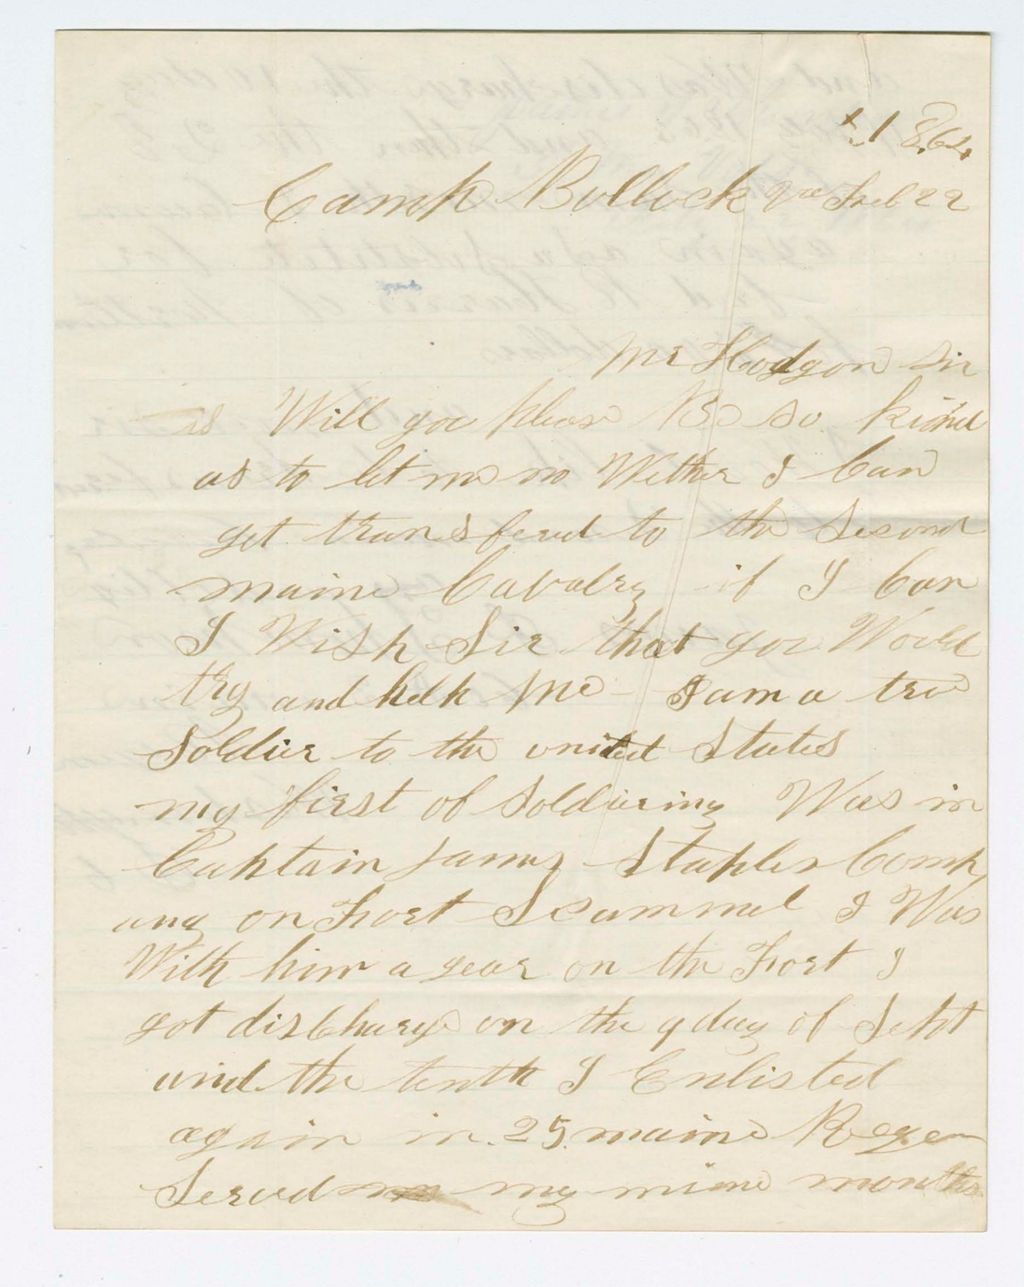 1864
Camp Bullock Va Feb 22
Mr Hodgon Sir
Will you pleas Be so kind
as to let me no Wether I Can
get transferd to the Second
maine Cavalry if I Can
I Wish Sir that you Would
try and help me I am a tru
Soldier to the united States
my first of Soldiering Was in
Captain James Staples Comp
any on Fort Scammel I Was
With him a year on the Fort I
got disCharge on the 9 day of Sept
and the tenth I Enlisted
again in 25 maine Regem
Served my mine months